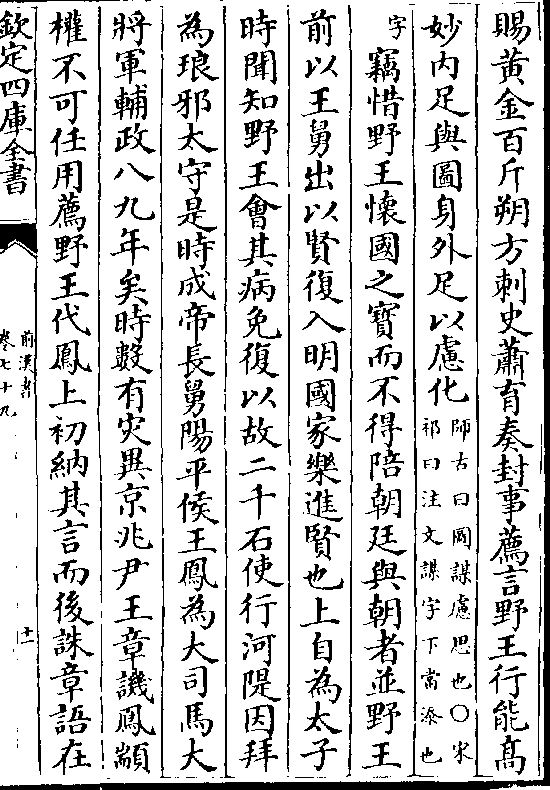 賜黃金百斤朔方刺史蕭育奏封事薦言野王行能髙
妙内足與圖身外足以慮化師古曰圖謀慮思也○宋
祁曰注文謀字下當添也
字竊惜野王懷國之寶而不得陪朝廷與朝者並野王
前以王舅出以賢復入明國家樂進賢也上自為太子
時聞知野王會其病免復以故二千石使行河隄因拜
為琅邪太守是時成帝長舅陽平侯王鳳為大司馬大
將軍輔政八九年矣時數有灾異京兆尹王章譏鳳顓
權不可任用薦野王代鳳上初納其言而後誅章語在
欽定四庫全書
前漢書
卷七十九
十一